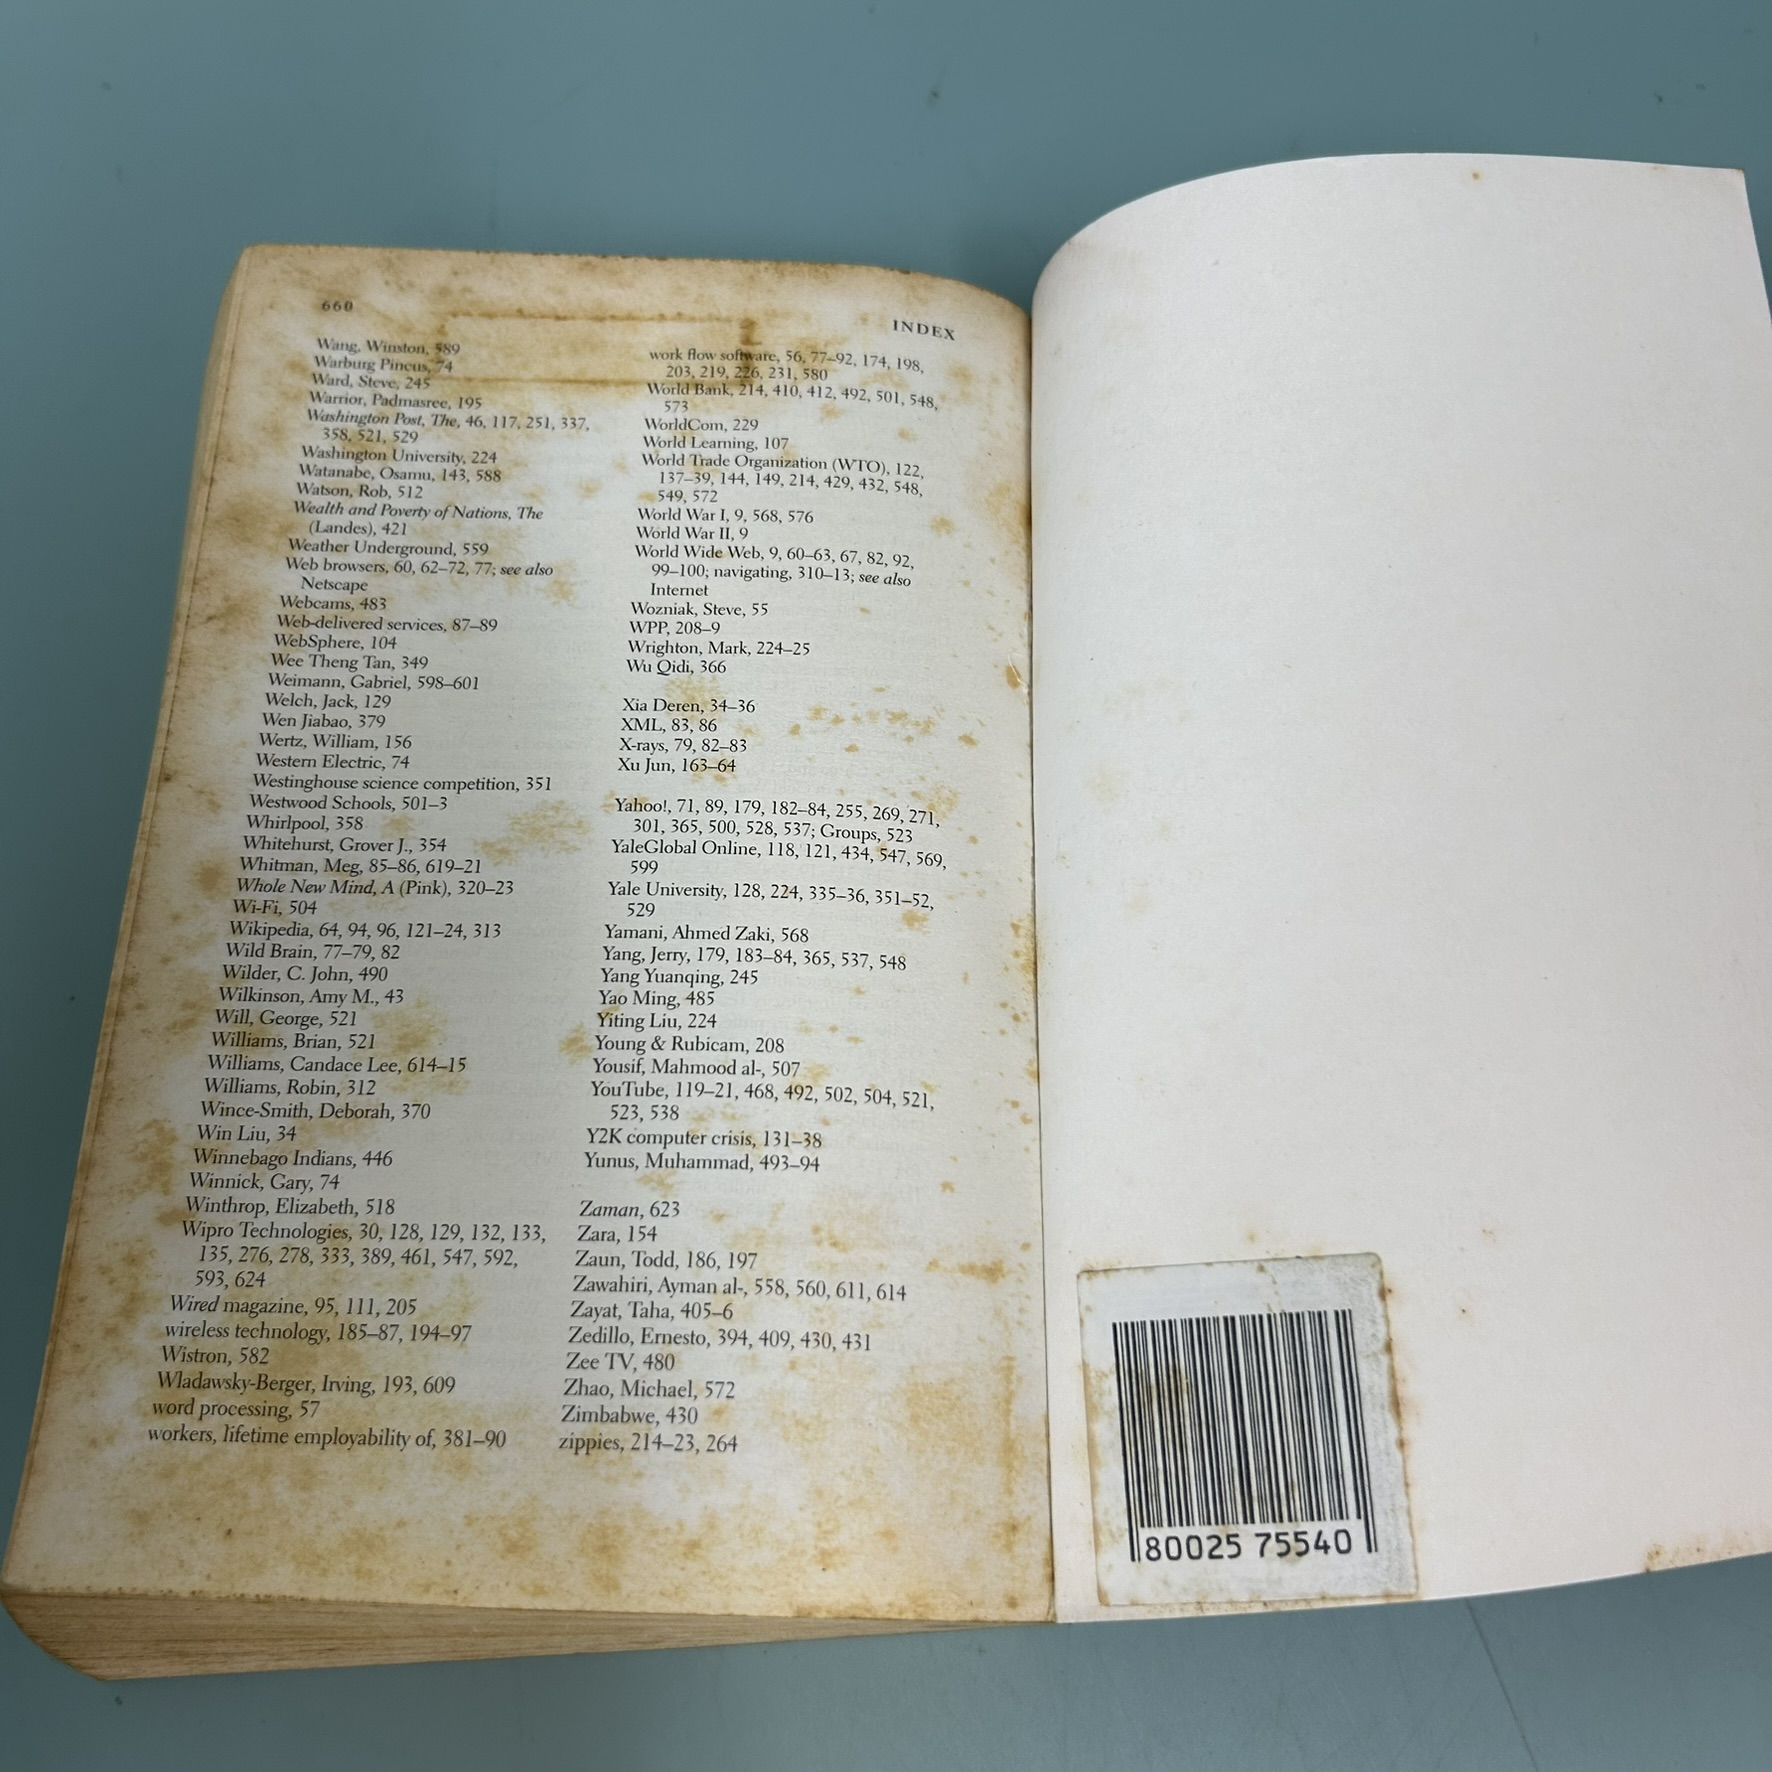 660
INDEX
Wang, Winston, 589
Warburg Pincus, 74
Ward, Steve, 245
Warrior, Padmasree, 195
Washington Post, The, 46, 117, 251, 337,
358, 521, 529
Washington University, 224
Watanabe, Osamu, 143, 588
Watson, Rob, 512
Wealth and Poverty of Nations, The
(Landes), 421
Weather Underground, 559
Web browsers, 60, 62–72, 77; see also
Netscape
Webcams, 483
Web-delivered services, 87–89
WebSphere, 104
Wee Theng Tan, 349
Weimann, Gabriel, 598–601
Welch, Jack, 129
Wen Jiabao, 379
Wertz, William, 156
Western Electric, 74
Westinghouse science competition, 351
Westwood Schools, 501–3
Whirlpool, 358
Whitehurst, Grover J., 354
Whitman, Meg, 85–86, 619–21
Whole New Mind, A (Pink), 320–23
Wi-Fi, 504
Wikipedia, 64, 94, 96, 121–24, 313
Wild Brain, 77–79, 82
Wilder, C. John, 490
Wilkinson, Amy M., 43
Will, George, 521
Williams, Brian, 521
Williams, Candace Lee, 614–15
Williams, Robin, 312
Wince-Smith, Deborah, 370
Win Liu, 34
Winnebago Indians, 446
Winnick, Gary, 74
Winthrop, Elizabeth, 518
Wipro Technologies, 30, 128, 129, 132, 133,
135, 276, 278, 333, 389, 461, 547, 592,
593, 624
Wired magazine, 95, 111, 205
wireless technology, 185–87, 194–97
Wistron, 582
Wladawsky-Berger, Irving, 193, 609
word processing, 57
workers, lifetime employability of, 381–90
work flow software, 56, 77–92, 174, 198,
203, 219, 226, 231, 580
World Bank, 214, 410, 412, 492, 501, 548,
573
WorldCom, 229
World Learning, 107
World Trade Organization (WTO), 122,
137–39, 144, 149, 214, 429, 432, 548,
549, 572
World War I, 9, 568, 576
World War II, 9
World Wide Web, 9, 60–63, 67, 82, 92,
99–100; navigating, 310–13; see also
Internet
Wozniak, Steve, 55
WPP, 208–9
Wrighton, Mark, 224–25
Wu Qidi, 366
Xia Deren, 34–36
XML, 83, 86
X-rays, 79, 82–83
Xu Jun, 163–64
Yahoo!, 71, 89, 179, 182–84, 255, 269, 271,
301, 365, 500, 528, 537; Groups, 523
YaleGlobal Online, 118, 121, 434, 547, 569,
599
Yale University, 128, 224, 335–36, 351–52,
529
Yamani, Ahmed Zaki, 568
Yang, Jerry, 179, 183–84, 365, 537, 548
Yang Yuanqing, 245
Yao Ming, 485
Yiting Liu, 224
Young & Rubicam, 208
Yousif, Mahmood al-, 507
YouTube, 119–21, 468, 492, 502, 504, 521,
523, 538
Y2K computer crisis, 131–38
Yunus, Muhammad, 493–94
Zaman, 623
Zara, 154
Zaun, Todd, 186, 197
Zawahiri, Ayman al-, 558, 560, 611, 614
Zayat, Taha, 405–6
Zedillo, Ernesto, 394, 409, 430, 431
Zee TV, 480
Zhao, Michael, 572
Zimbabwe, 430
zippies, 214–23, 264
80025 75540